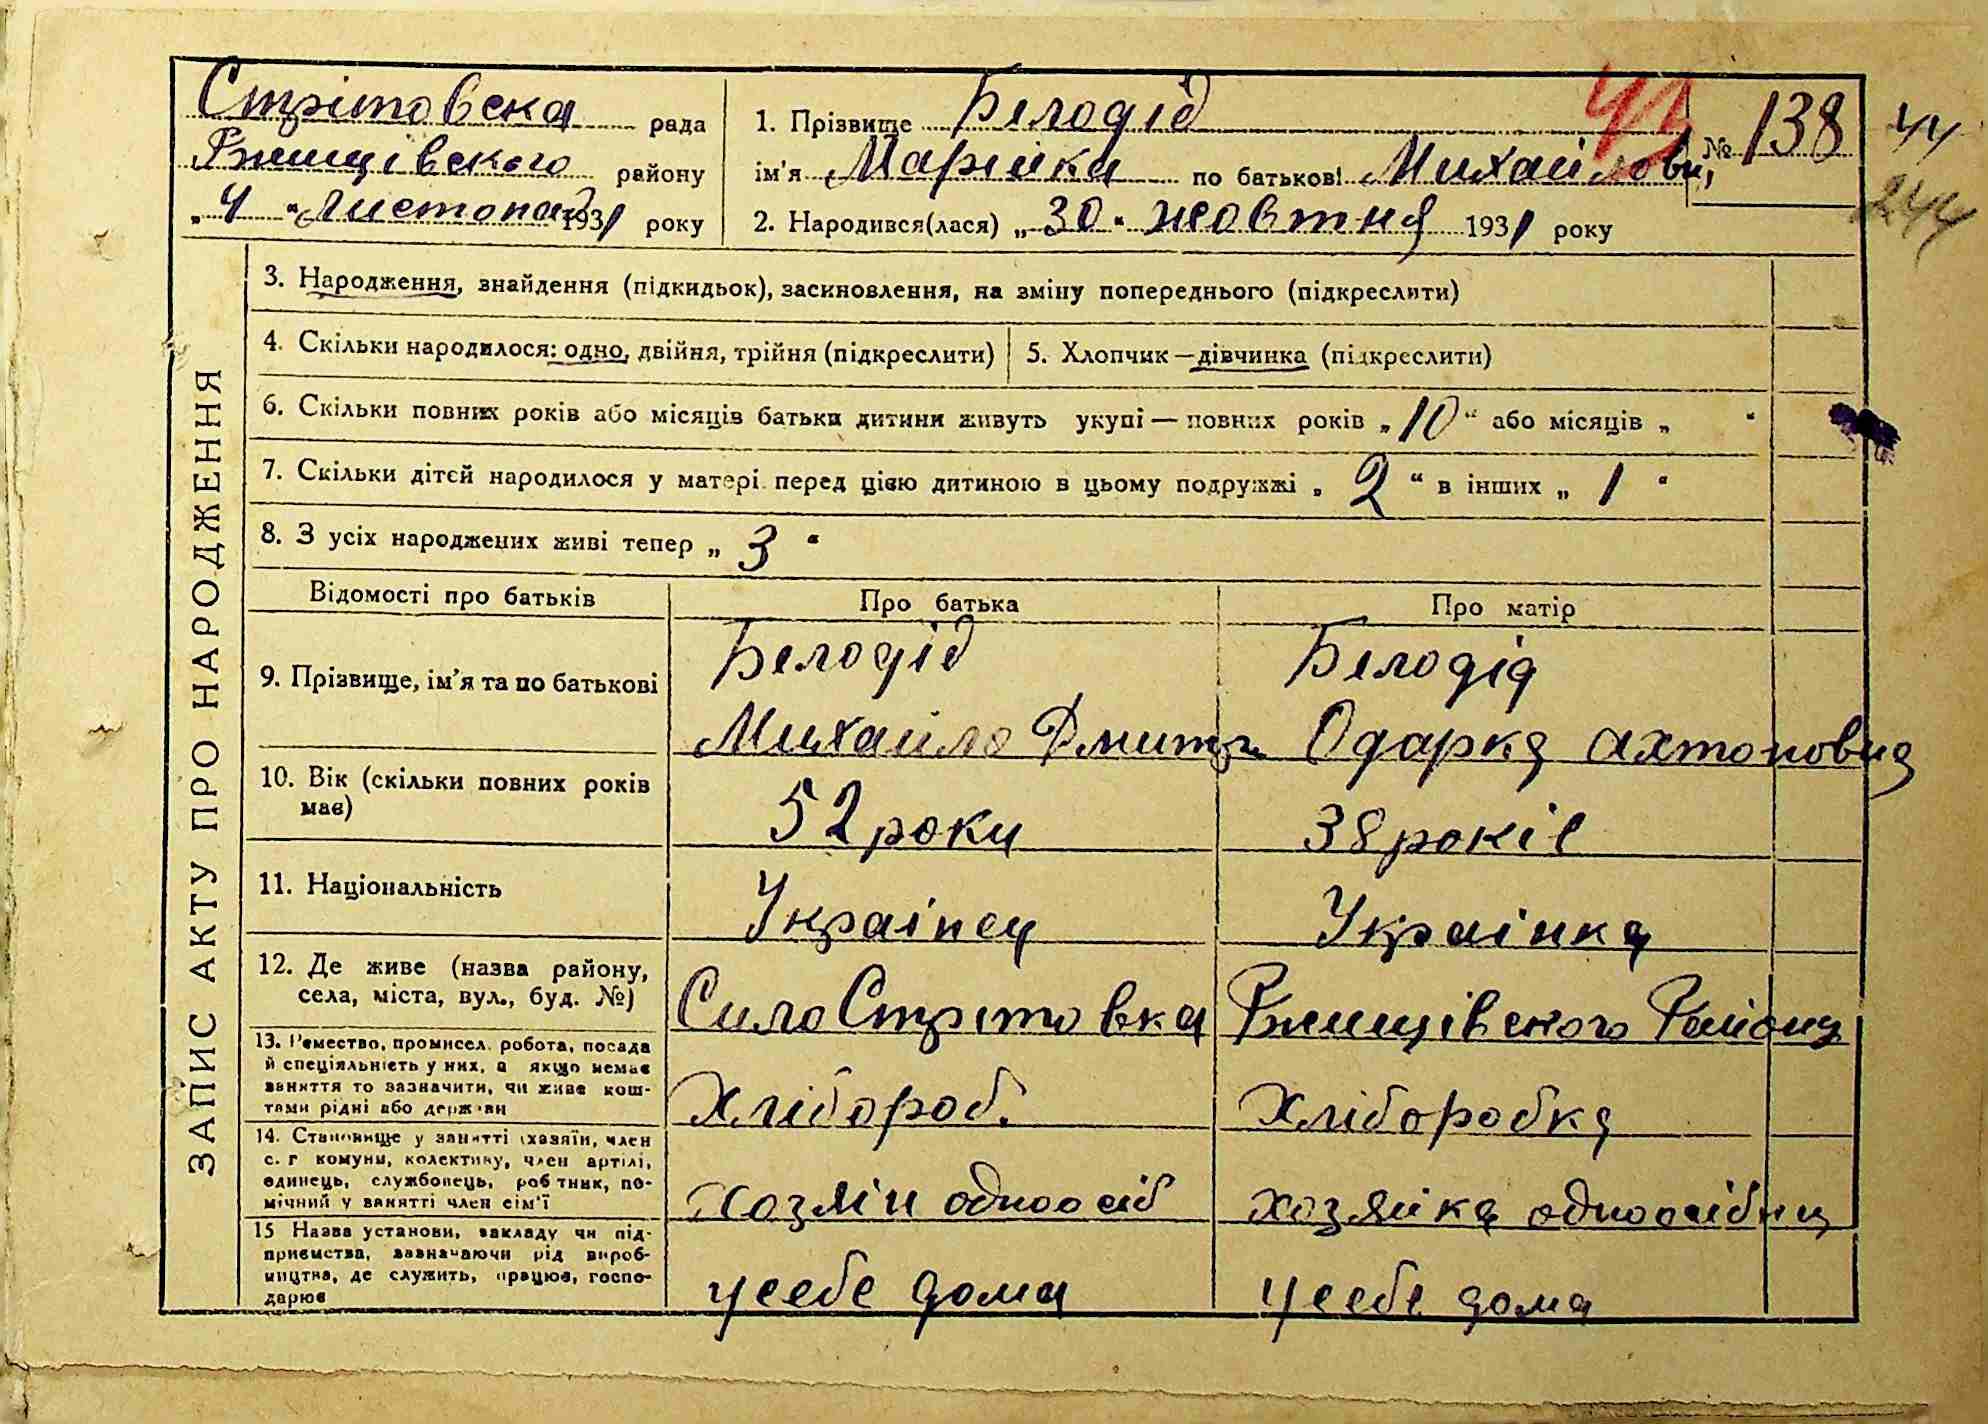 Стрітовска рада
Ржищівского району
„4“ Листопад 1931 року
1. Прізвище Белодід
ім'я Марійка по батькові Михайловн,
№ 138
44
244
2. Народився(лася) „30“ жовтня 1931 року
ЗАПИС АКТУ ПРО НАРОДЖЕННЯ
3. Народження, знайдення (підкидьок), засиновлення, на зміну попереднього (підкреслити)
4. Скільки народилося: одно, двійня, трійня (підкреслити)
5. Хлопчик — дівчинка (підкреслити)
6. Скільки повних років або місяців батьки дитини живуть укупі — повних років „10“ або місяців „ “
7. Скільки дітей народилося у матері перед цією дитиною в цьому подружжі „2“ в інших „1“
8. З усіх народжених живі тепер „3“
Відомості про батьків
Про батька
Про матір
9. Прізвище, ім'я та по батькові
Белодід
Михайло Дмитр
Белодід
Одарка Ахтоповна
10. Вік (скільки повних років
має)
52 роки
38 років
11. Національність
Украінец
Украінка
12. Де живе (назва району,
села, міста, вул., буд. №)
Сило Стрітовка
Ржищівского Району
13. Ремество, промисел, робота, посада
й спеціяльність у них, а якщо немає
заняття то зазначити, чи живе кош-
тами рідні або держави
Хлібороб.
Хліборобка
14. Становище у занятті (хазяїн, член
с. г. комуни, колективу, член артілі,
єдинець, службовець, робітник, по-
мічний у занятті член сім'ї
хозяін одноосіб
хозяйка одноосібниц
15 Назва установи, закладу чи під-
приємства, зазначаючи рід вироб-
ництва, де служить, працює, госпо-
дарює
у себе дома
у себе дома